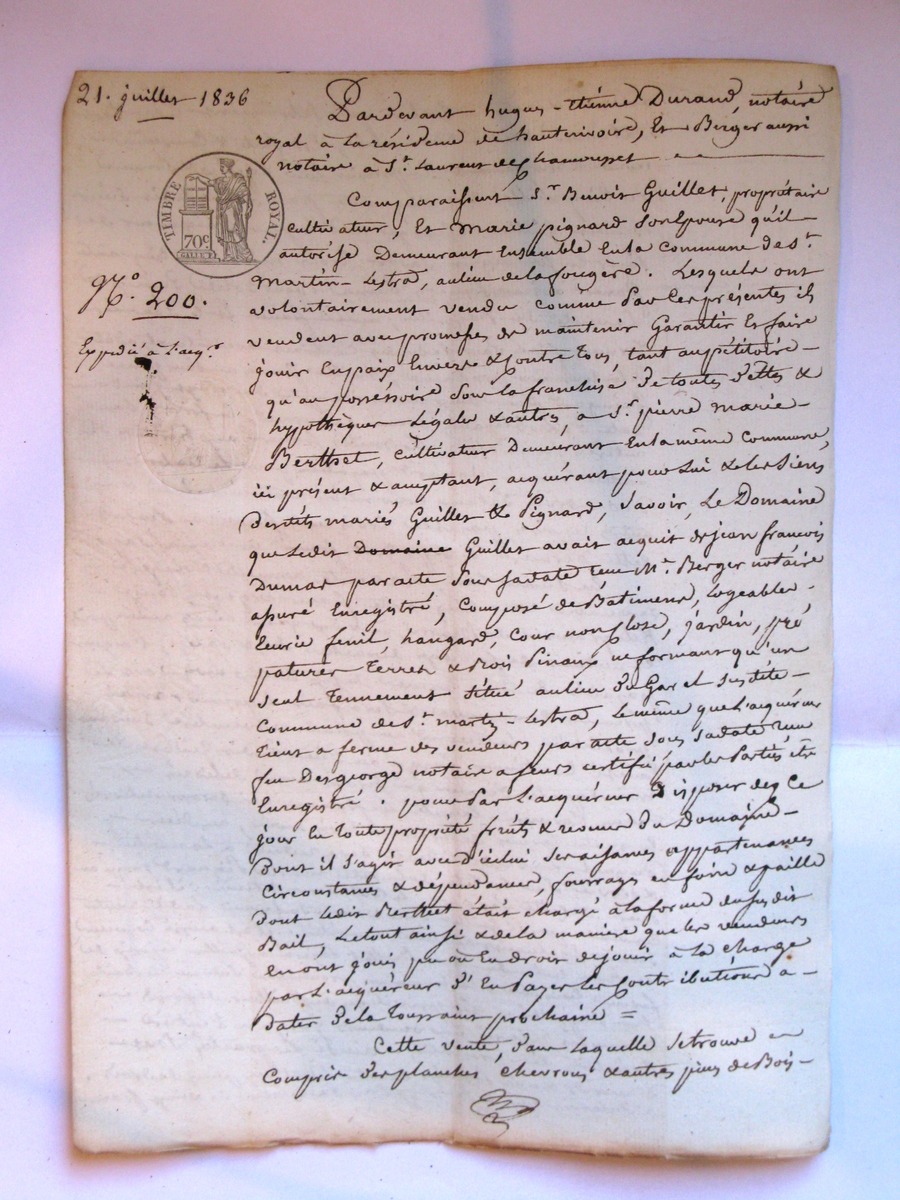 21. juillet 1836
Pardevant hugues-étienne Durand, notaire
royal à la résidence de hauterivoire, et Berger aussi
notaire à St. Laurent de Chamousset
TIMBRE ROYAL.
70c
N.o 200.
Expedié à l'acqr.
Comparaissent Sr. Benoit Guillet, propriétaire
cultivateur, et Marie pignard son Epouse qu'il
autorise Demeurant Ensemble En la Commune de St.
Martin-Lestra, au lieu de la fougère. Lesquels ont
volontairement vendu comme Par Ces présentes ils
vendent avec promesses de maintenir Garantir Et faire
jouir En paix Envers & Contre tous, tant au pétitoire
qu'au possessoire sous la franchise de toutes dettes &
hypothèques Légales & autres, à Sr. pierre marie
Berthet, cultivateur Demeurant En la même Commune,
ici présent & acceptant, acquérant pour Lui & les Siens
Desdits mariés Guillet & Pignard, Savoir, Le Domaine
que Ledit Domaine Guillet avait acquit de jean francois
Dumas par acte Sous sa date reçu Me. Berger notaire
assuré Enregistré, Composé de Batimens, Logeables
Ecurie fenil, hangard, Cour non Close, jardin, pré
patures terres & Bois Pinaux ne formant qu'un
seul tennement situé au lieu de Garel susdite
Commune de St. martin-Lestra, le même que L'acquéreur
tient a ferme des vendeurs par acte sous sa date reçu
feu Desgeorge notaire a feurs certifié par les Parties être
Enregistré. pour Par L'acquéreur Disposer dez Ce
jour En toute propriété fruits & revenus du Domaine
Dont il s'agit avec d'icelui ses aisances appartenances
Circonstances & dépendances, fourrages en foin & paille
dont Ledit Berthet était chargé à la forme du susdit
Bail, Le tout ainsi & de la manière que les vendeurs
en ont joui pu ou Eu droit de jouir à la charge
par L'acquéreur d'En Payer les Contributions a
Dater de la Toussaint prochaine =
Cette vente, dans Laquelle se trouve en
Compris des planches chevrons & autres pièces de Bois